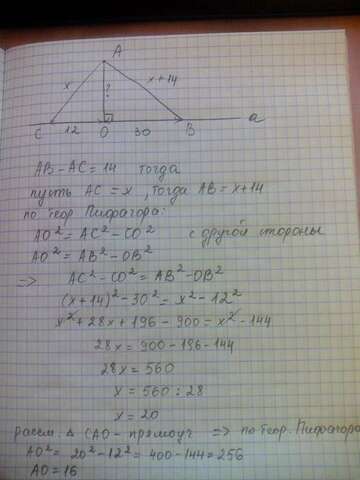 A
x
x+14
?
C
12
O
30
B
a
AB-AC=14 тогда
пусть AC=x, тогда AB=x+14
по теор. Пифагора:
AO²=AC²-CO² с другой стороны
AO²=AB²-OB²
=> AC²-CO²=AB²-OB²
(x+14)²-30²=x²-12²
x²+28x+196-900=x²-144
28x=900-196-144
28x=560
x=560:28
x=20
рассм. △ CAO - прямоуг => по теор. Пифагора
AO²=20²-12²=400-144=256
AO=16